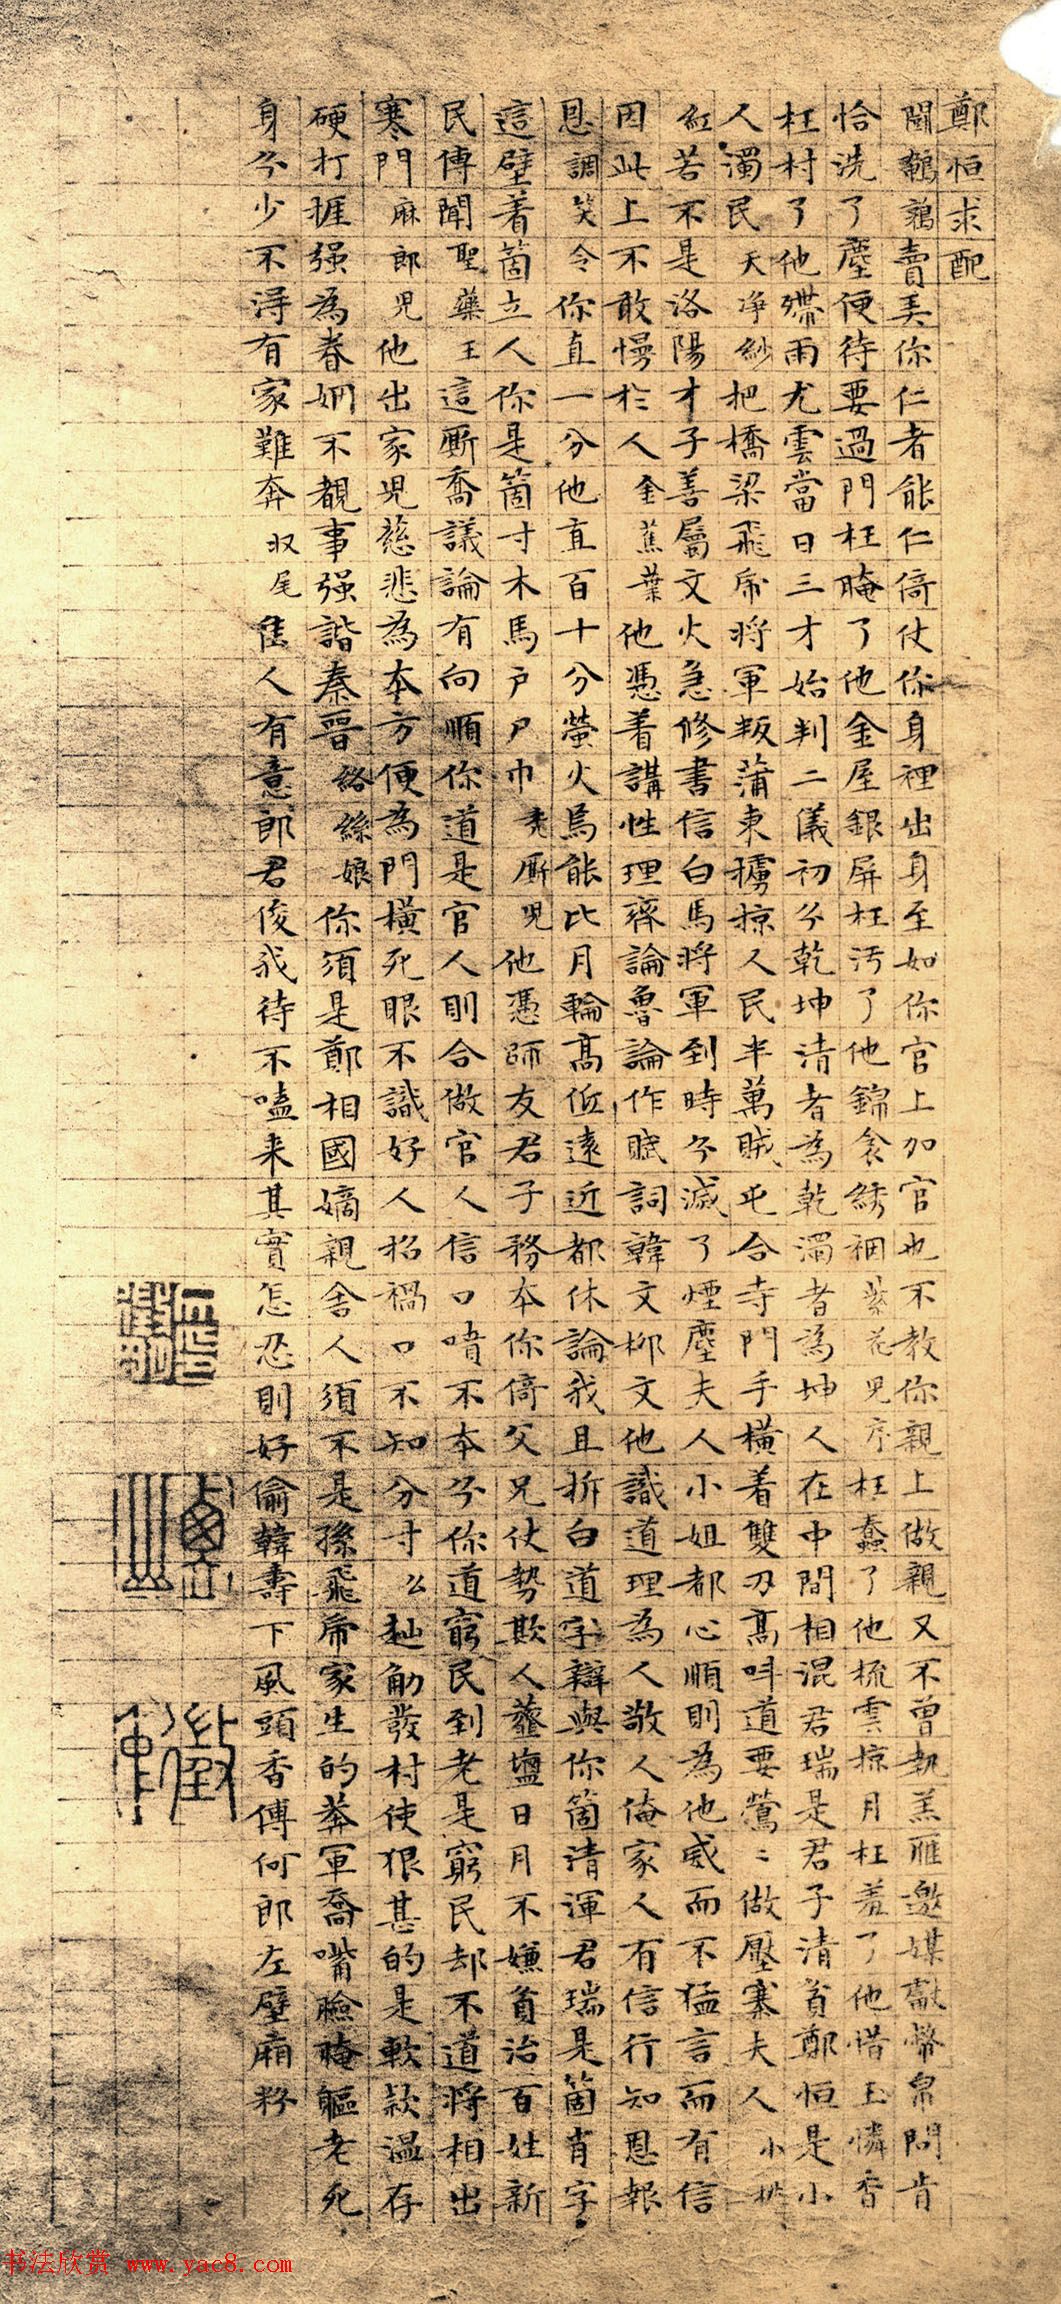 鄭恒求配
鬪鵪鶉賣美你仁者能仁倚仗你身裡出身至如你官上加官也不教你親上做親又不曾執羔雁邀媒獻幣帛問肯
恰洗了塵便待要過門枉腌了他金屋銀屏枉污了他錦衾綉裀紫花兒序枉蠢了他梳雲掠月枉羞了他惜玉憐香
枉村了他殢雨尤雲當日三才始判二儀初分乾坤清者為乾濁者為坤人在中間相混君瑞是君子清貧鄭恒是小
人濁民天淨紗把橋梁飛虎將軍叛蒲東擄掠人民半萬賊屯合寺門手橫着雙刃高叫道要鶯〻做壓寨夫人小桃
紅若不是洛陽才子善屬文火急修書信白馬將軍到時分滅了煙塵夫人小姐都心順則為他威而不猛言而有信
因此上不敢慢於人金蕉葉他憑着講性理齊論魯論作賦詞韓文柳文他識道理為人敬人俺家人有信行知恩報
恩調笑令你直一分他直百十分螢火焉能比月輪高低遠近都休論我且拆白道字辯與你箇清渾君瑞是箇肖字
這壁着箇立人你是箇寸木馬戶尸巾禿厮兒他憑師友君子務本你倚父兄仗勢欺人虀鹽日月不嫌貧治百姓新
民傳聞聖藥王這厮喬議論有向順你道是官人則合做官人信口噴不本分你道窮民到老是窮民却不道將相出
寒門麻郎兒他出家兒慈悲為本方便為門橫死眼不識好人招禍口不知分寸么赸觔發村使狠甚的是軟款溫存
硬打捱强為眷姻不覩事强諧秦晉絡絲娘你須是鄭相國嫡親舍人須不是孫飛虎家生的莽軍喬嘴臉腌軀老死
身分少不得有家難奔収尾隹人有意郎君俊我待不嗑来其實怎忍則好偷韓壽下風頭香傅何郎左壁廂粉
书法欣赏 www.yac8.com